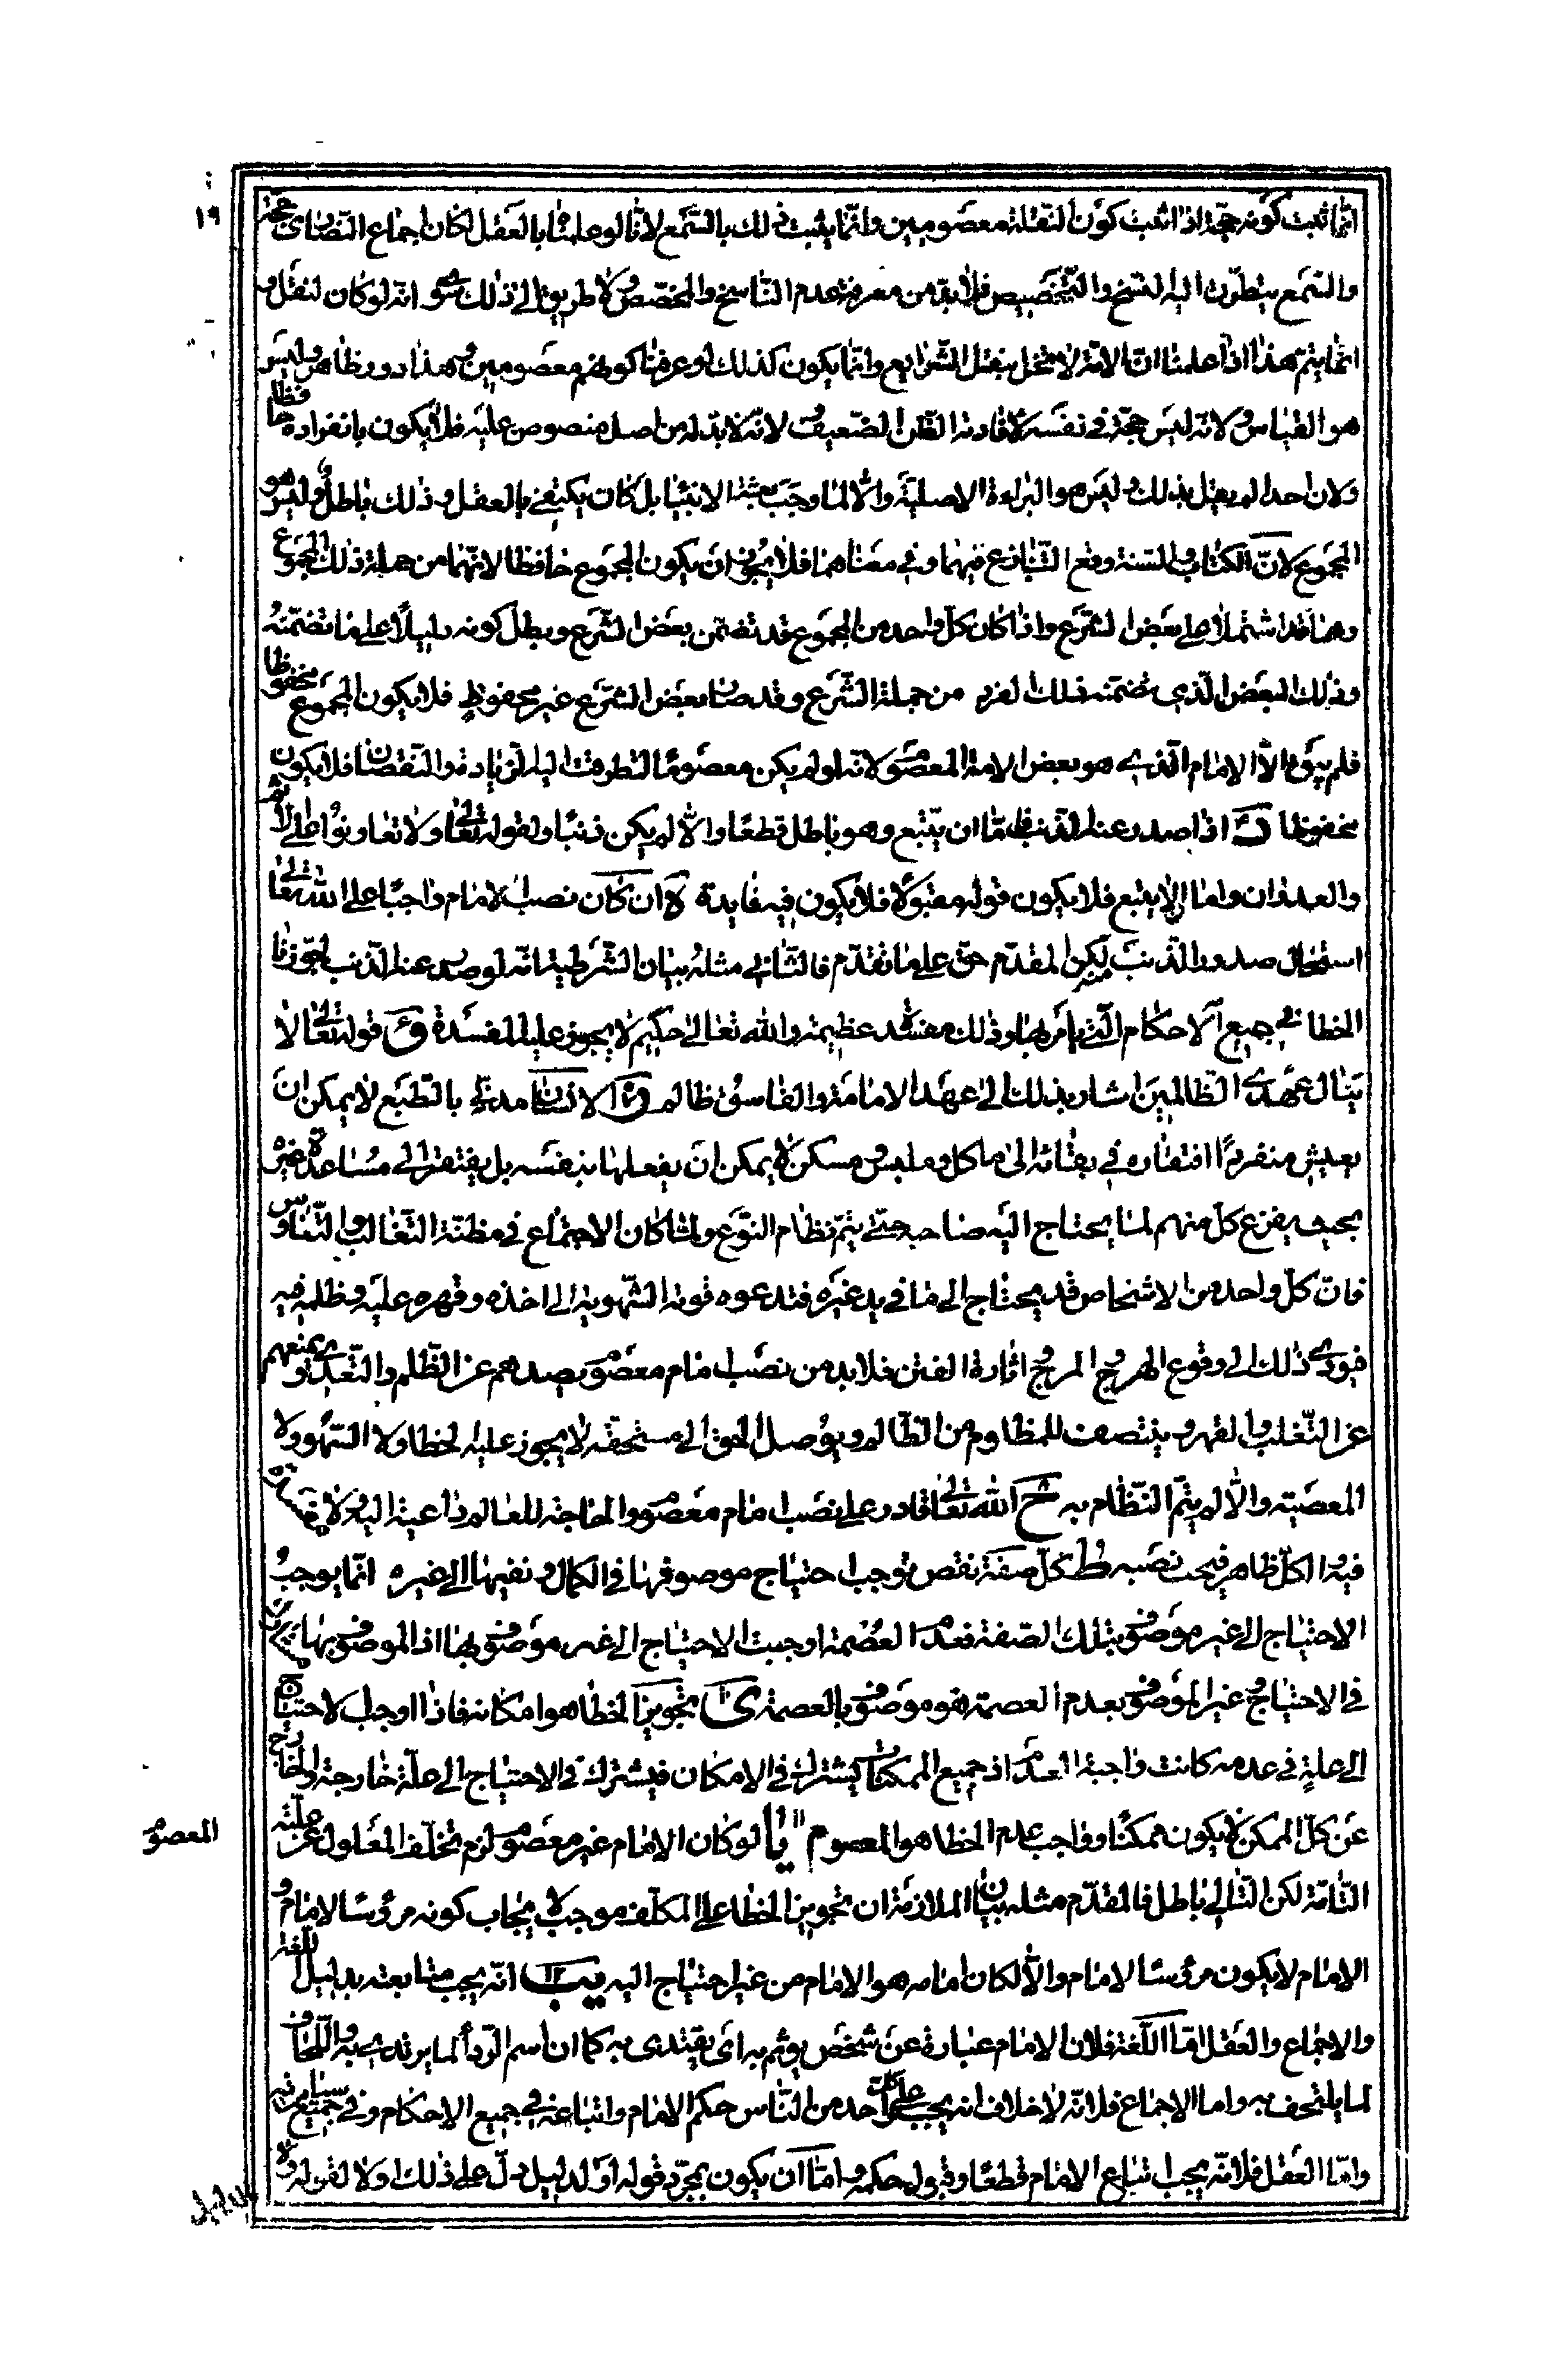 ١٩
انّما ثبت كونه حجّة اذا ثبت كون النّقلة معصومين وانّما يثبت ذلك بالسّمع لانّا لو علمناه بالعقل لكان اجماع النّصارى حجّة
والسّمع يتطرّق اليه النّسخ والتّخصيص فلا بدّ من معرفة عدم النّاسخ والمخصّص ولا طريق الى ذلك سوى انّه لو كان لنقل و
انّما يتم هذا اذا علمنا انّ الامّة لا تخل بنقل الشّرايع وانّما يكون كذلك لو عرفنا كونهم معصومين وهذا دور ظاهر وليس
هو القياس لانّه ليس حجّة في نفسه لافادته الظّن الضّعيف لانّه لا بدّ له من اصل منصوص عليه فلا يكون بانفراده حافظا
ولان احدا لم يقل بذلك وليس هو البراءة الاصليّة والّا لما وجب بعثة الانبيا بل كان يكتفى بالعقل وذلك باطل وليس هو
المجموع لانّ الكتاب والسّنة وقع التّنازع فيهما وفي معناهما فلا يجوز ان يكون المجموع حافظا لانّهما من جملة ذلك المجموع
وهما قد اشتملا على بعض الشّرع واذا كان كلّ واحد من المجموع قد تضمّن بعض الشّرع وبطل كونه دليلًا على ما تضمّنه
وذلك البعض الّذي تضمّنه ذلك الفرد من جملة الشّرع وقد صار بعض الشّرع غير محفوظٍ فلا يكون المجموع محفوظا
فلم يبق الّا الامام الّذي هو بعض الامة المعصوم لانّه لو لم يكن معصومًا لتطرقت اليه الزّيادة والنّقصان فلا يكون
محفوظا اذا صدر عنه الذّنب فامّا ان يتّبع وهو باطل قطعًا والّا لم يكن ذنبًا ولقوله تعالى ولا تعاونوا على الاثم
والعدوان واما ان لا يتبع فلا يكون قوله مقبولًا فلا يكون فيه فايدة ان كان نصب الامام واجبًا على الله تعالى
استحال صدور الذّنب منه لكن المقدّم حق على ما تقدّم فالتّاني مثله بيان الشّرطية انّه لو صدر عنه الذّنب لجوّزنا
الخطا في جميع الاحكام الّتي يأمر بها وذلك مفسدة عظيمة والله تعالى حكيم لا يجوز عليه المفسدة قوله تعالى لا
ينال عهدى الظّالمين اشار بذلك الى عهد الامامة والفاسق ظالم الانسان مدنىّ بالطّبع لا يمكن ان
يعيش منفردًا افتقاره في بقائه الى ماكل وملبس ومسكن لا يمكن ان يفعلها بنفسه بل يفتقر الى مساعدة غيره
بحيث يفزع كل منهم لما يحتاج اليه صاحبه حتى يتمّ نظام النّوع ولمّا كان الاجتماع في مظنّة التّغالب والتّغاوس
فانّ كلّ واحد من الاشخاص قد يحتاج الى ما في يد غيره فتدعوه قوته الشّهوية الى اخذه وقهره عليه وظلمه فيه
فيودى ذلك الى وقوع الهرج والمرج واثارة الفتن فلا بد من نصب امام معصوم يصدهم عن الظّلم والتّعدى ويمنعهم
عن التّغلب والقهر وينتصف للمظلوم من الظّالم ويوصل الحق الى مستحقّه لا يجوز عليه الخطا ولا السّهو ولا
المعصية والّا لم يتمّ النّظام به الله تعالى قادر على نصب امام معصوم والحاجة للعالم داعية اليه ولا مفسدة
فيه والكلّ ظاهر فيجب نصبه كلّ صفة نقص توجب احتياج موصوفها في الكمال ونفيها الى غيره انّما يوجب
الاحتياج الى غير موصوف بتلك الصّفة فعدم العصمة اوجبت الاحتياج الى غير موصوف بها اذ الموصوف بها
في الاحتياج غير الموصوف بعدم العصمة هو موصوف بالعصمة تجويز الخطا هو امكانه فاذا اوجب الاحتياج
الى علةٍ في عدمه كانت واجبة العدم اذ جميع الممكنات يشترك في الامكان فيشترك في الاحتياج الى علّة خارجة والخارج
عن كلّ الممكن لا يكون ممكنًا وواجب عدم الخطا هو المعصوم يا لو كان الامام غير معصوم لزم تخلّف المعلول عن علّته
المعصوم
التّامّة لكن التّالى باطل فالمقدّم مثله بيان الملازمة ان تجويز الخطا على المكلّف موجب لايجاب كونه مرؤسًا لامام و
الامام لا يكون مرؤسًا لامام والّا لكان امامه هو الامام من غير احتياج اليه يب انّه يجب متابعته بدليل اللّغة
والاجماع والعقل امّا اللّغة فلان الامام عبارة عن شخص يؤتم به اى يقتدى به كما ان اسم الرّدأ لما يرتدى به واللّحاف
لما يلتحف به واما الاجماع فلانّه لا خلاف انه يجب على كل واحد من النّاس حكم الامام واتباعه في جميع الاحكام وفي جميع
وامّا العقل فلانّه يجب اتباع الامام قطعًا وقبول حكمه وامّا ان يكون بمجرّد قوله او لدليل دلّ على ذلك او لا لقوله ولا